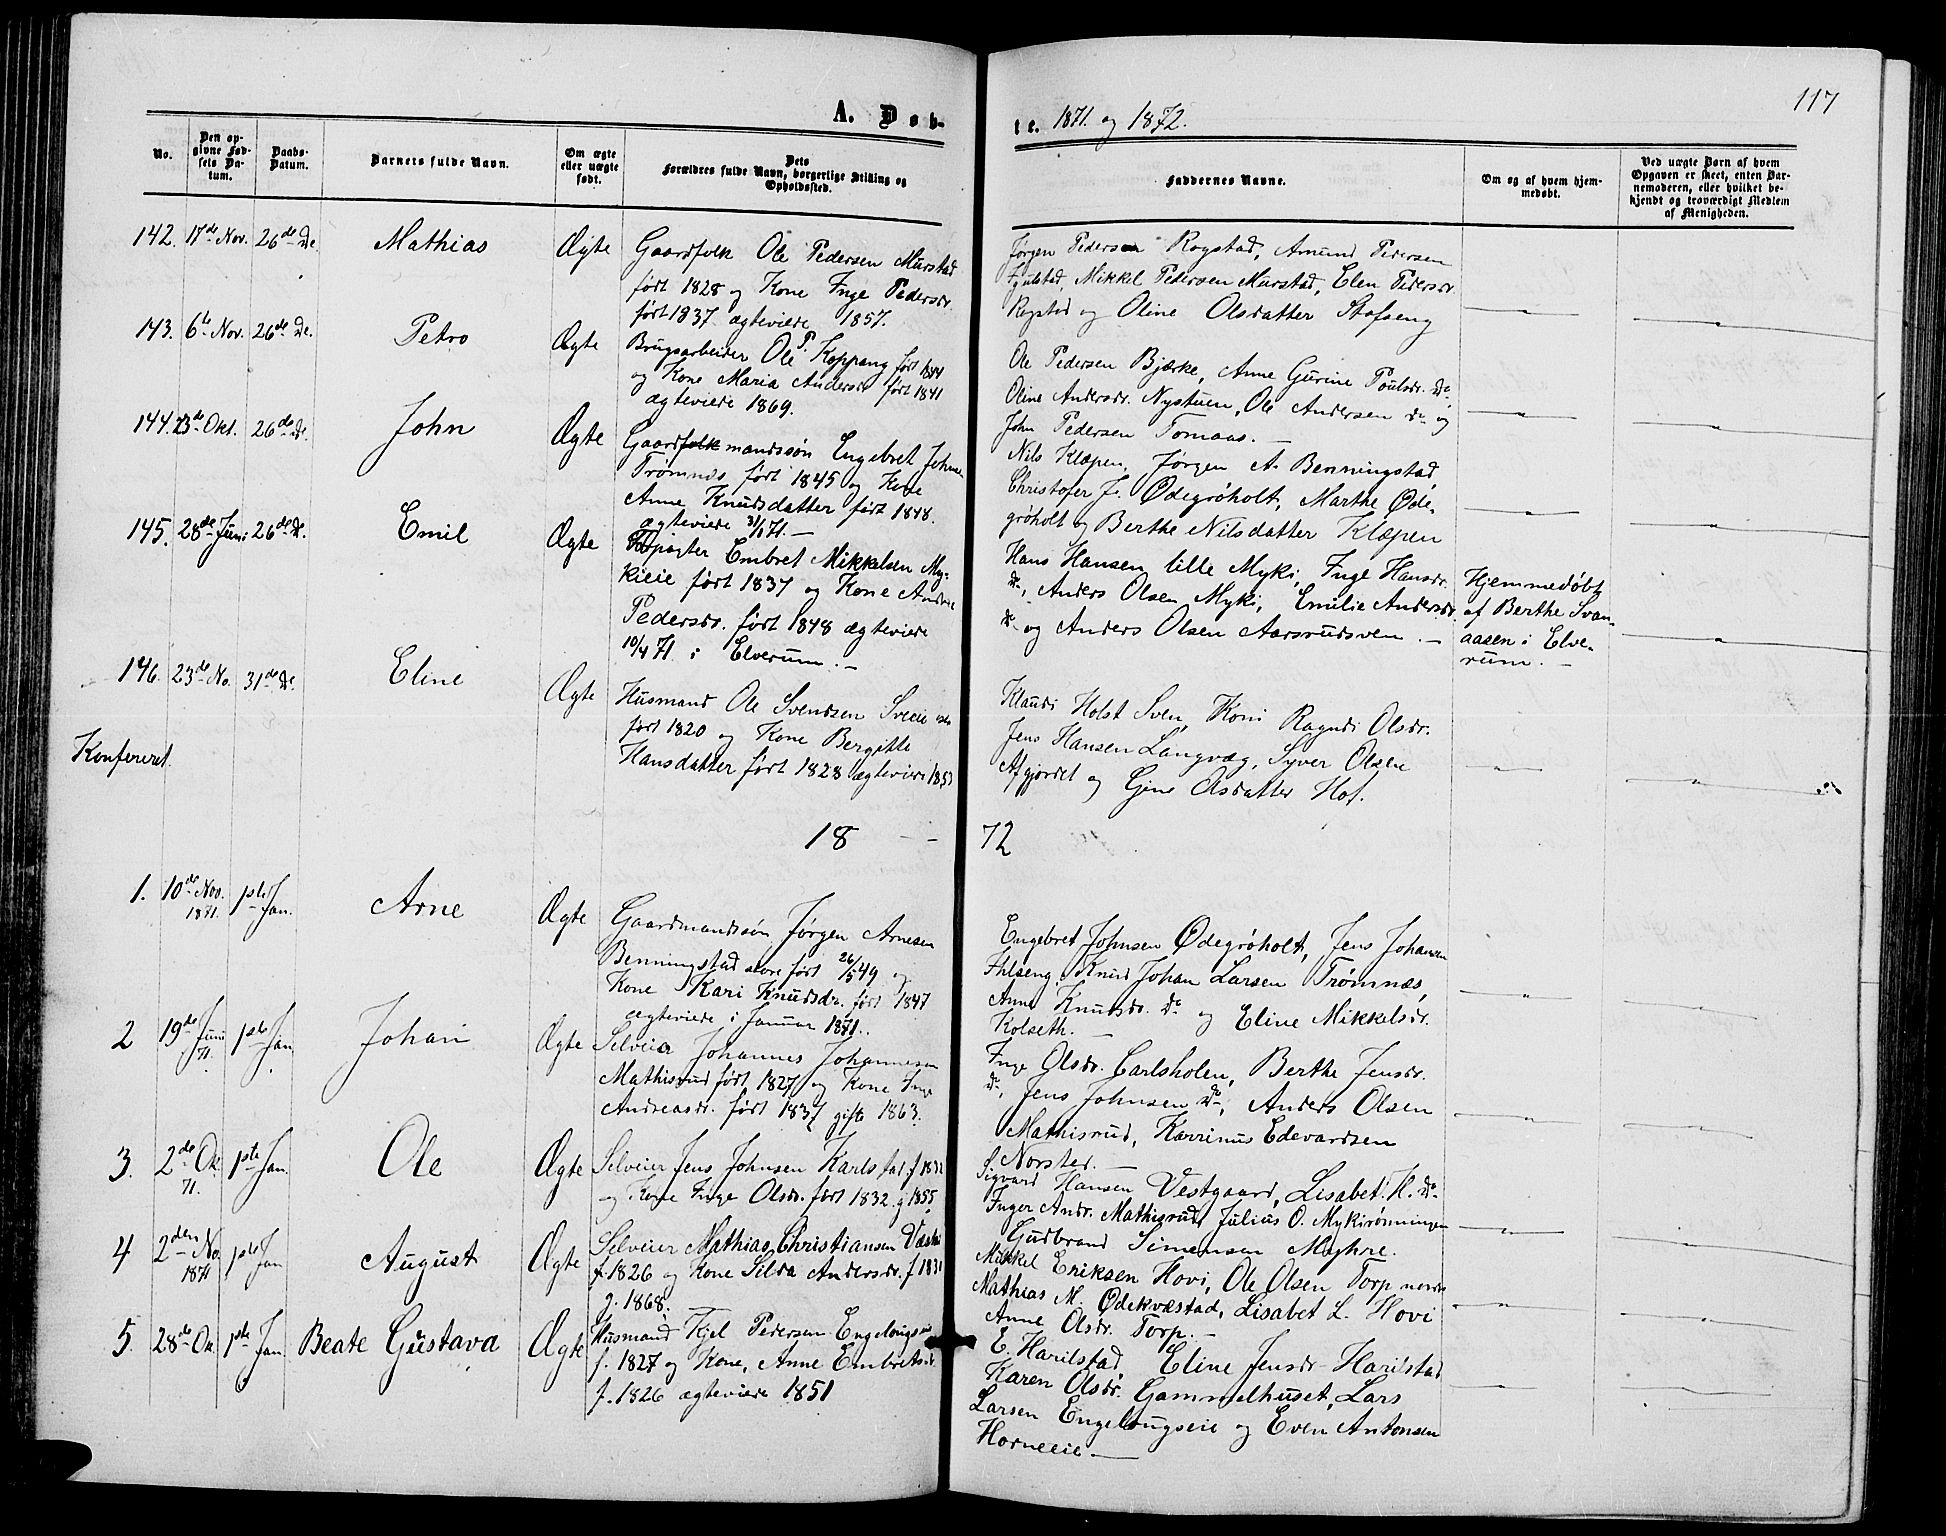 117
A. Døb-
te. 1871. og 1872.
No.
Den op-
givne Fød-
sels Da-
tum.
Daabs-
Datum.
Barnets fulde Navn.
Om ægte
eller uægte
født.
Dets
Forældres fulde Navn, borgerlige Stilling og
Opholdssted.
Faddernes Navne.
Om og af hvem hjem-
medøbt.
Ved uægte Børn af hvem
Opgaven er skeet, enten Bar-
nemoderen, eller hvilket be-
kjendt og troværdigt Medlem
af Menigheden.
142. 17de Nov. 26de De. Mathias Ægte
Gaardfolk Ole Pedersen Murstad
født 1828 og Kone Inge Pedersdr.
født 1837 ægteviede 1857.
Jørgen Pedersen Rogstad, Amund Pedersen
Mikkel Pedersen Murstad, Elen Pedersdr.
Rogstad og Oline Olsdatter Stofseng
143. 6te Nov. 26de De. Petro Ægte
Brugsarbeider Ole P. Koppang født 1844
og Kone Maria Andersdr. født 1841
ægteviede 1869.
Ole Pedersen Bjærke, Anne Gurine Poulsdr. do,
Oline Andersdr. Nystuen, Ole Andersen do og
John Pedersen Tomaas. —
144. 23de Okt. 26de De. John Ægte
Gaardfolk mandssøn Engebret Johnsen
Trømnes født 1845 og Kone
Anne Knudsdatter født 1848.
ægteviede 31/1 71. —
Nils Klæpen, Jørgen A. Benningstad,
Christofer J. Ødegrøholt, Marthe Øde-
grøholt og Berthe Nilsdatter Klæpen
145. 28de Juni 26de De. Emil Ægte
Embret Mikkelsen My-
kieie født 1837 og Kone Andrea
Pedersdr. født 1848 ægteviede
10/4 71. i Elverum. —
Hans Hansen lille Myki, Inge Hansdr.
do, Anders Olsen Myki, Emilie Andersdr.
do og Anders Olsen Aarsrudsven. —
Hjemmedøbt
af Berthe Svan-
aasen i Elve-
rum. —
146. 23de No. 31de De. Eline Ægte
Husmand Ole Svendsen Sveeie
født 1820 og Kone Bergitte
Hansdatter født 1828 ægteviede 1853
Klaudi Holst Sven, Koni Ragndi Olsdr.
Jens Hansen Langvæg, Syver Olsen
Afgjordet og Gine Olsdatter Hof.
Konfereret.
18 — 72
1. 10de Nov. 1871. 1ste Jan. Arne Ægte
Gaardmandssøn Jørgen Arnesen
Benningstad store født 26/5 49 og
Kone Kari Knudsdr. født 1847
ægteviede i Januar 1871.
Engebret Johnsen Ødegrøholt, Jens Johansen
Ihlseng, Knud Johan Larsen Trømnæs,
Anne Knudsdr. do og Eline Mikkelsdr.
Kolseth. —
2 19de Juni 71. 1ste Jan. Johan Ægte
Selveier Johannes Johannesen
Mathisrud født 1827 og Kone Inge
Andreasdr. født 1837 gifte 1863.
Inge Olsdr. Carlsholen, Berthe Jensdr.
do, Jens Johnsen do, Anders Olsen
Mathisrud, Karrinus Edevardsen
Norsted. —
3. 2de Ok. 71. 1ste Jan. Ole Ægte
Selveier Jens Johnsen Karlstad f. 1832
og Kone Inge Olsdr. født 1832 g. 1855.
Sigvard Hansen Vestgaard, Lisabet H. do
Inger Andr. Mathisrud, Julius O. Mykirønningen
Gudbrand Simensen Myhre.
4 2den No. 1871 1ste Jan August Ægte
Selveier Mathias Christiansen
f. 1826 og Kone Silda Andersdr. f 1831
g. 1868.
Mikkel Eriksen Hovi, Ole Olsen Torp nordre
Mathias M. Ødekvæstad, Lisabet L. Hovi
Anne Olsdr. Torp. —
5. 28de Ok. 1ste Jan Beate Gustava Ægte
Husmand Kjel Pedersen
f. 1827 og Kone, Anne Embretsdr.
f. 1826 ægteviede 1851
E. Harilstad, Eline Jensdr. Harilstad
Karen Olsdr. Gammelhuset, Lars
Larsen Engelougseie og Even Antonsen
Horneeie —